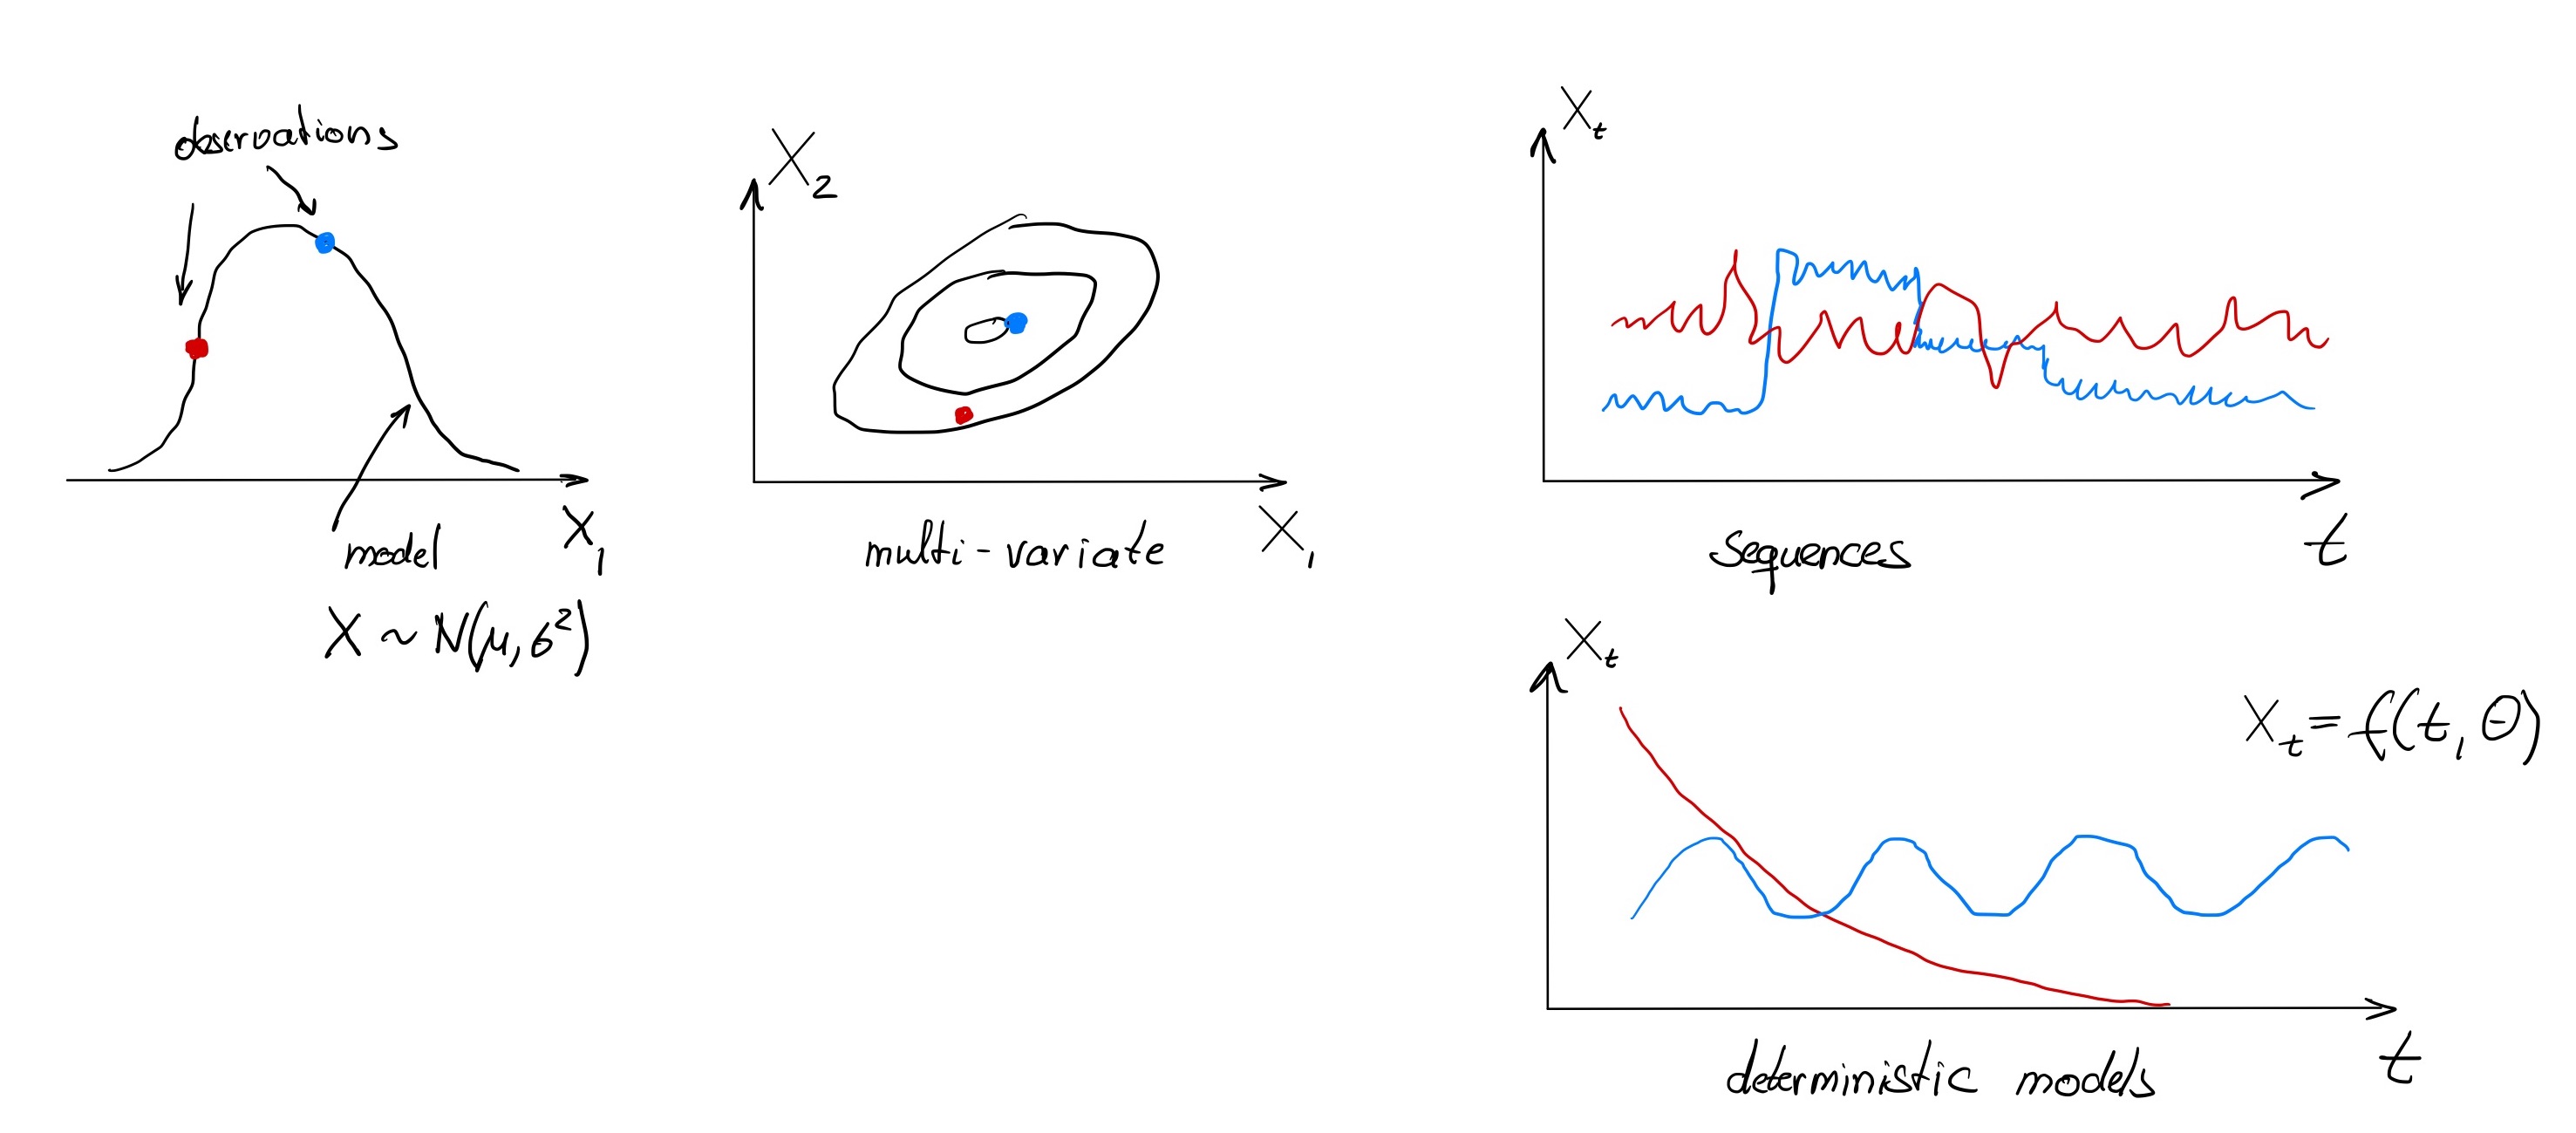 observations
model
X₁
X ~ N(μ, σ²)
X₂
multi-variate
X₁
Xₜ
Sequences
t
Xₜ
Xₜ = f(t, θ)
deterministic models
t